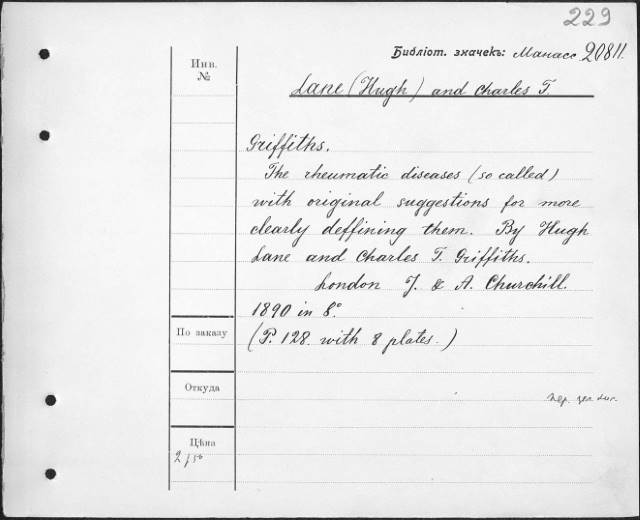 229
Библіот. значекъ: Манасс 20811.
Инв.
№
Lane (Hugh) and Charles T.
Griffiths.
The rheumatic diseases (so called)
with original suggestions for more
clearly deffining them. By Hugh
Lane and Charles T. Griffiths.
London J. & A. Churchill.
1890 in 8.º
(P. 128. with 8 plates.)
По заказу
Откуда
Цѣна
2 / 50